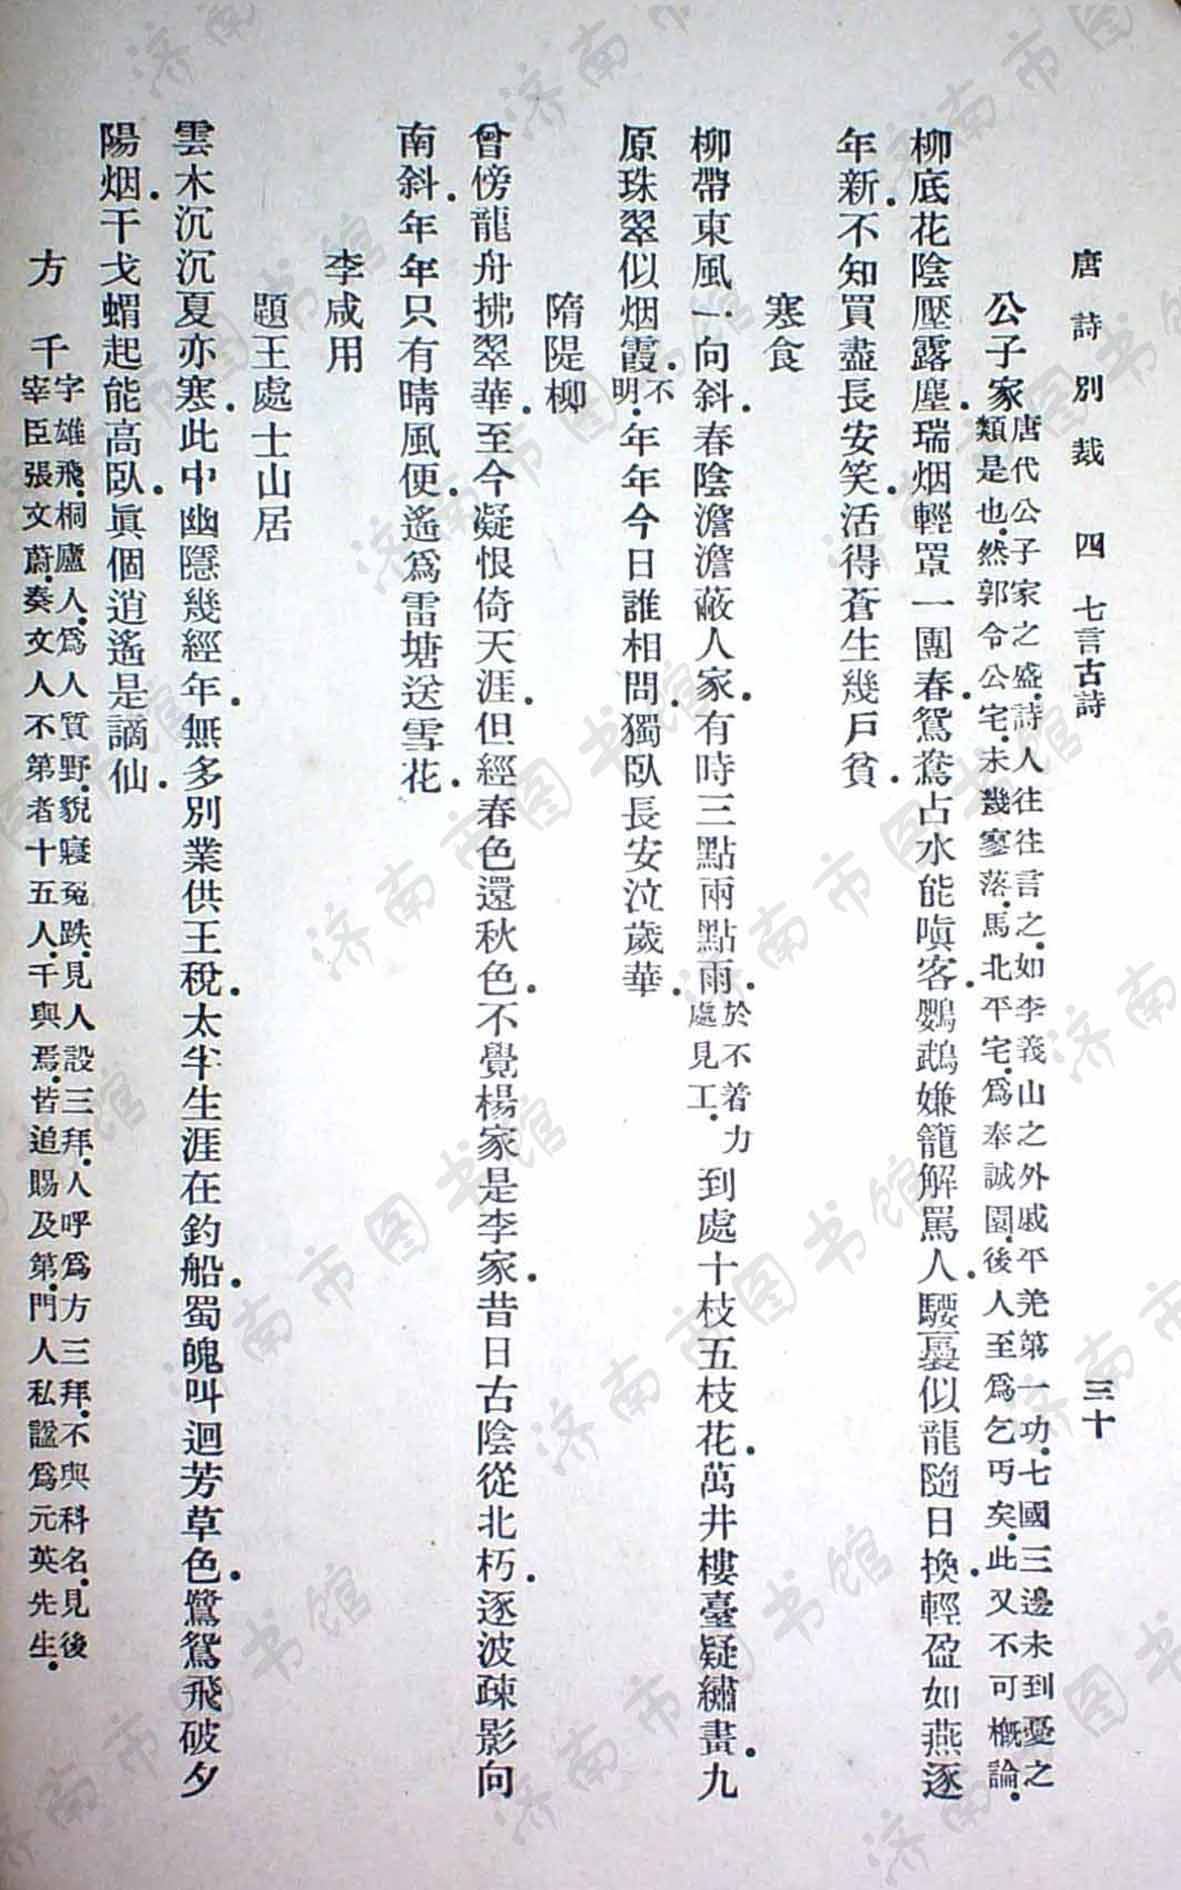 唐詩別裁 四 七言古詩 三十
公子家唐代公子家之盛．詩人往往言之．如李義山之外戚平羌第一功．七國三邊未到憂之
類是也．然郭令公宅．未幾寥落．馬北平宅．爲奉誠園．後人至爲乞丐矣．此又不可槪論．
柳底花陰壓露塵．瑞烟輕罩一團春．鴛鴦占水能嗔客．鸚鵡嫌籠解罵人．騕褭似龍隨日換．輕盈如燕逐
年新．不知買盡長安笑．活得蒼生幾戶貧．
寒食
柳帶東風一向斜．春陰澹澹蔽人家．有時三點兩點雨．於不着力處見工．到處十枝五枝花．萬井樓臺疑繡畫．九
原珠翠似烟霞．不明．年年今日誰相問．獨臥長安泣歲華．
隋隄柳
曾傍龍舟拂翠華．至今凝恨倚天涯．但經春色還秋色．不覺楊家是李家．昔日古陰從北朽．逐波疎影向
南斜．年年只有晴風便．遙爲雷塘送雪花．
李咸用
題王處士山居
雲木沉沉夏亦寒．此中幽隱幾經年．無多別業供王稅．太半生涯在釣船．蜀魄叫迴芳草色．鷺鴛飛破夕
陽烟．干戈蝟起能高臥．眞個逍遙是謫仙．
方千字雄飛．桐廬人．爲人質野．貌寢兔跌．見人設三拜．人呼爲方三拜．不與科名．見後
宰臣張文蔚．奏文人不第者十五人．千與焉．皆追賜及第．門人私諡爲元英先生．